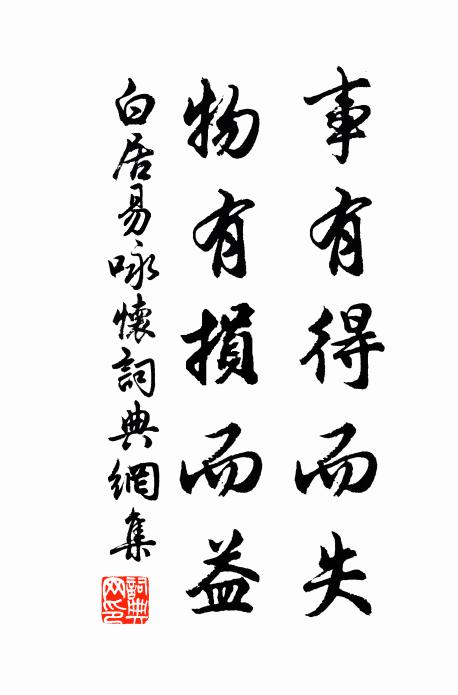 事有得而失
物有損而益
白居易咏懷詞典網集
詞典网印